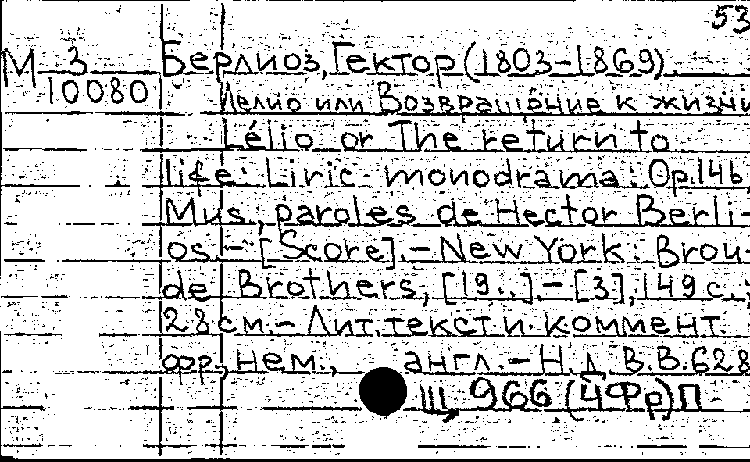 53
М 3 Берлиоз, Гектор (1803-1869).
10080 Лелио или Возвращение к жизни
Lélio or The return to
life: Liric monodrama: Op.14b
Mus., paroles de Hector Berli-
os. - [Score]. - New York: Brou-
de Brothers, [19..]. - [3], 149 с.;
28 см. - Лит. текст и коммент.
фр., нем., англ. - Н.д. B.B.628
Щ 966 (4Фр)П